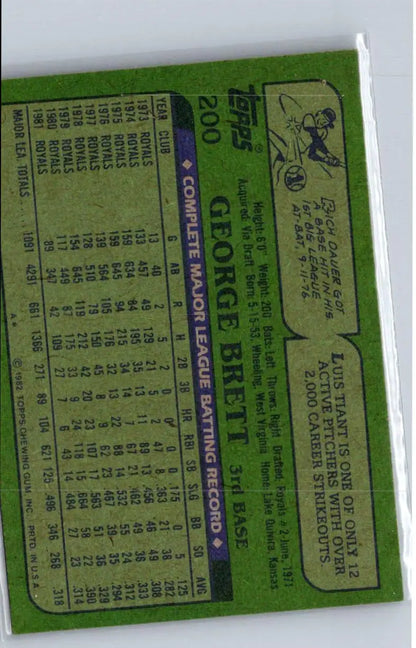 BICH DAUER GOT
A BASE HIT IN HIS
1ST BIG LEAGUE
AT-BAT, 9-11-76
LUIS TIANT IS ONE OF ONLY 12
ACTIVE PITCHERS WITH OVER
2,000 CAREER STRIKEOUTS
TOPPS®
200
GEORGE BRETT 3rd BASE
Height: 6'0 Weight: 200 Bats: Left Throws: Right Drafted: Royals #2-June, 1971
Acquired: Via Draft Born: 5-15-53, Wheeling, West Virginia Home: Lake Quivira, Kansas
◆ COMPLETE MAJOR LEAGUE BATTING RECORD ◆
YEAR CLUB G AB R H 2B 3B HR RBI SB SLG BB SO AVG
1973 ROYALS 13 40 2 5 2 0 0 0 0 .175 0 5 .125
1974 ROYALS 133 457 49 129 21 5 2 47 8 .363 21 38 .282
1975 ROYALS 159 634 84 195 35 13 11 89 13 .456 46 49 .308
1976 ROYALS 159 645 94 215 34 14 7 67 21 .462 49 36 .333
1977 ROYALS 139 564 105 176 32 13 22 88 14 .532 55 24 .312
1978 ROYALS 128 510 79 150 45 8 9 62 23 .467 39 35 .294
1979 ROYALS 154 645 119 212 42 20 23 107 17 .563 51 36 .329
1980 ROYALS 117 449 87 175 33 9 24 118 15 .664 58 22 .390
1981 ROYALS 89 347 42 109 27 7 6 43 14 .484 27 23 .314
MAJOR LEA. TOTALS 1091 4291 661 1366 271 89 104 621 125 .496 346 268 .318
A* © 1982 TOPPS CHEWING GUM, INC. PRTD. IN U.S.A.